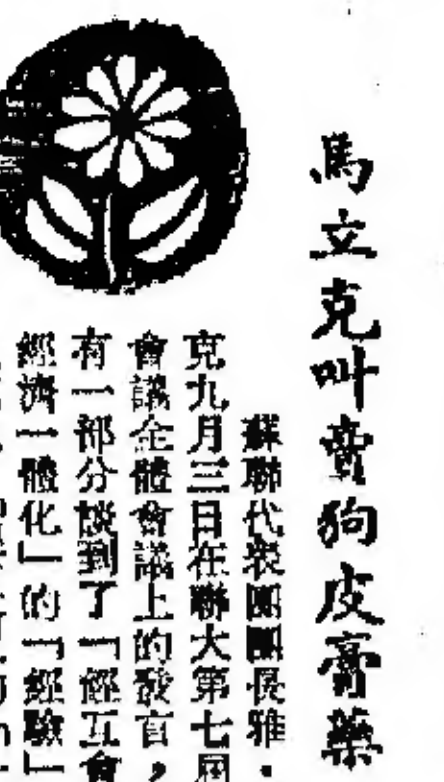 馬立克叫賣狗皮膏藥
蘇聯代表團團長雅·
克九月三日在聯大第七屆
會議全體會議上的發言,
有一部分談到了「經互會
經濟一體化」的「經驗」